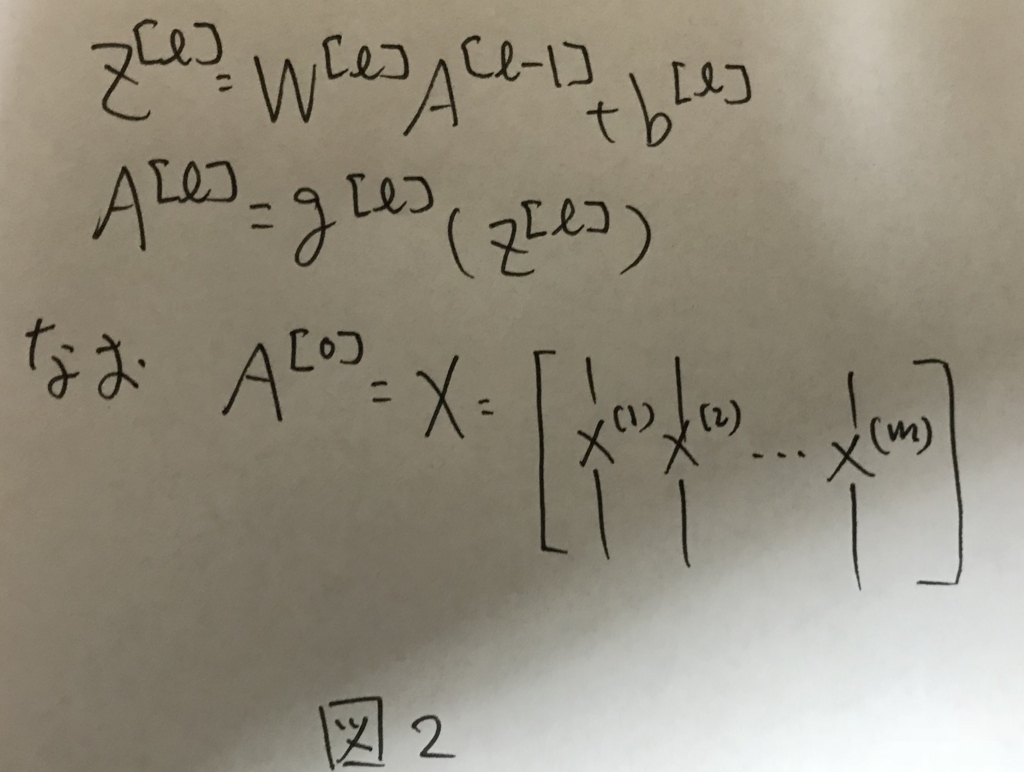 Z^[l] = W^[l] A^[l-1] + b^[l]
A^[l] = g^[l] (Z^[l])
A^[0] = X = [ x^(1) x^(2) ... x^(m) ]
図 2